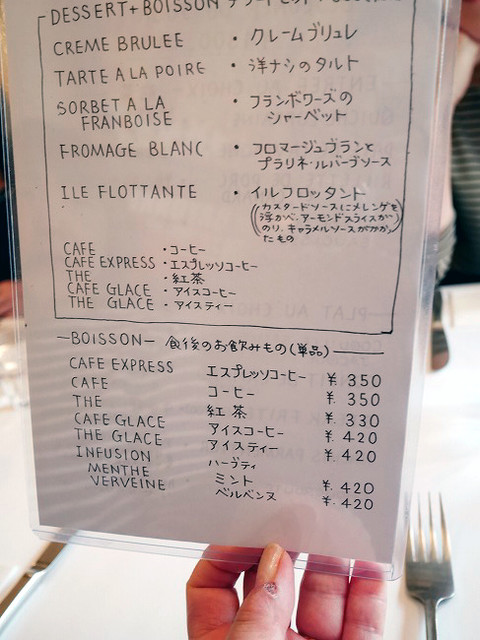 DESSERT + BOISSON デザートセット
CREME BRULEE ・クレームブリュレ
TARTE A LA POIRE ・洋ナシのタルト
SORBET A LA ・フランボワーズの
FRANBOISE シャーベット
FROMAGE BLANC ・フロマージュブランと
プラリネ・ルバーブソース
ILE FLOTTANTE ・イルフロッタント
(カスタードソースにメレンゲを
浮かべ、アーモンドスライスが
のり、キャラメルソースがかかっ
たもの)
CAFE ・コーヒー
CAFE EXPRESS ・エスプレッソコーヒー
THE ・紅茶
CAFE GLACE ・アイスコーヒー
THE GLACE ・アイスティー
―BOISSON― 食後のお飲みもの(単品)
CAFE EXPRESS エスプレッソコーヒー ¥.350
CAFE コーヒー ¥.350
THE 紅茶 ¥.330
CAFE GLACE アイスコーヒー ¥.420
THE GLACE アイスティー ¥.420
INFUSION ハーブティ
MENTHE ミント ¥.420
VERVEINE ベルベンヌ ¥.420